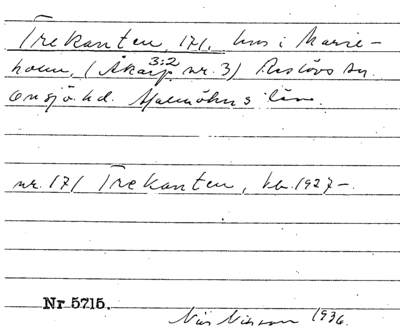 Trekanten, 171, hus i Marie-
holm, (Åkarp nr. 3) Reslövs sn.
3:2
Onsjö hd. Malmöhus län.
nr. 171 Trekanten, kb. 1927-.
Nr 5715.
Nils Nilsson 1936.